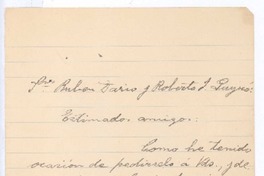 Srs. Ruben Dario y Roberto J. Payró.
Estimados amigos:
Como he tenido
ocasión de pedírselo á Vds., y de